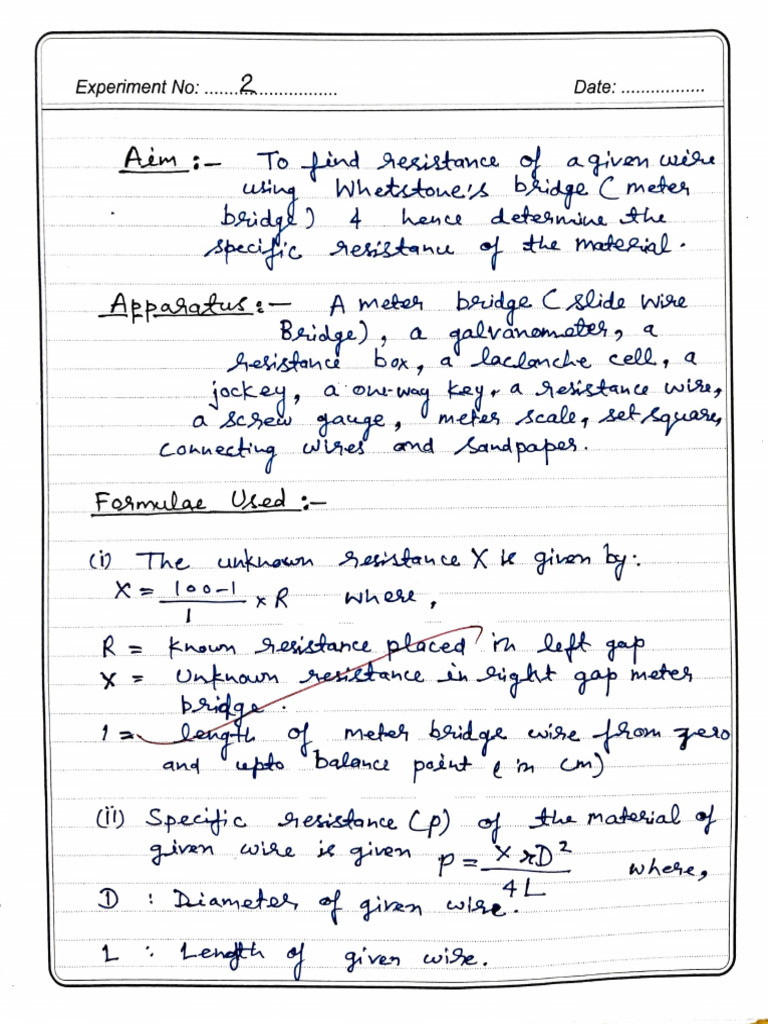 Experiment No: .......2................ Date: .................
Aim :- To find resistance of a given wire
using Whetstone's bridge ( meter
bridge) & hence determine the
specific resistance of the material.
Apparatus :- A meter bridge ( slide wire
Bridge), a galvanometer, a
resistance box, a laclanche cell, a
jockey, a one-way key, a resistance wire,
a screw gauge, meter scale, set square,
connecting wires and sandpaper.
Formulae Used :-
(i) The unknown resistance X is given by:
X = (100-1)/1 × R where,
R = Known resistance placed in left gap
X = Unknown resistance in right gap meter
bridge.
1 = length of meter bridge wire from zero
and upto balance point ( in cm)
(ii) Specific resistance (p) of the material of
given wire is given p = X πD²/4L where,
D : Diameter of given wire.
L : Length of given wire.